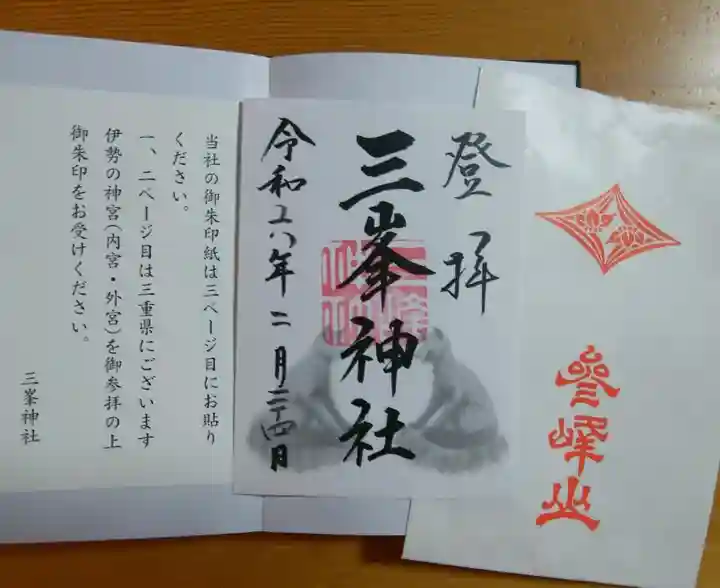 參峰山
登拝
三峯神社
令和六年二月二十四日
当社の御朱印紙は三ページ目にお貼り
ください。
一、二ページ目は三重県にございます
伊勢の神宮(内宮・外宮)を御参拝の上
御朱印をお受けください。
三峯神社